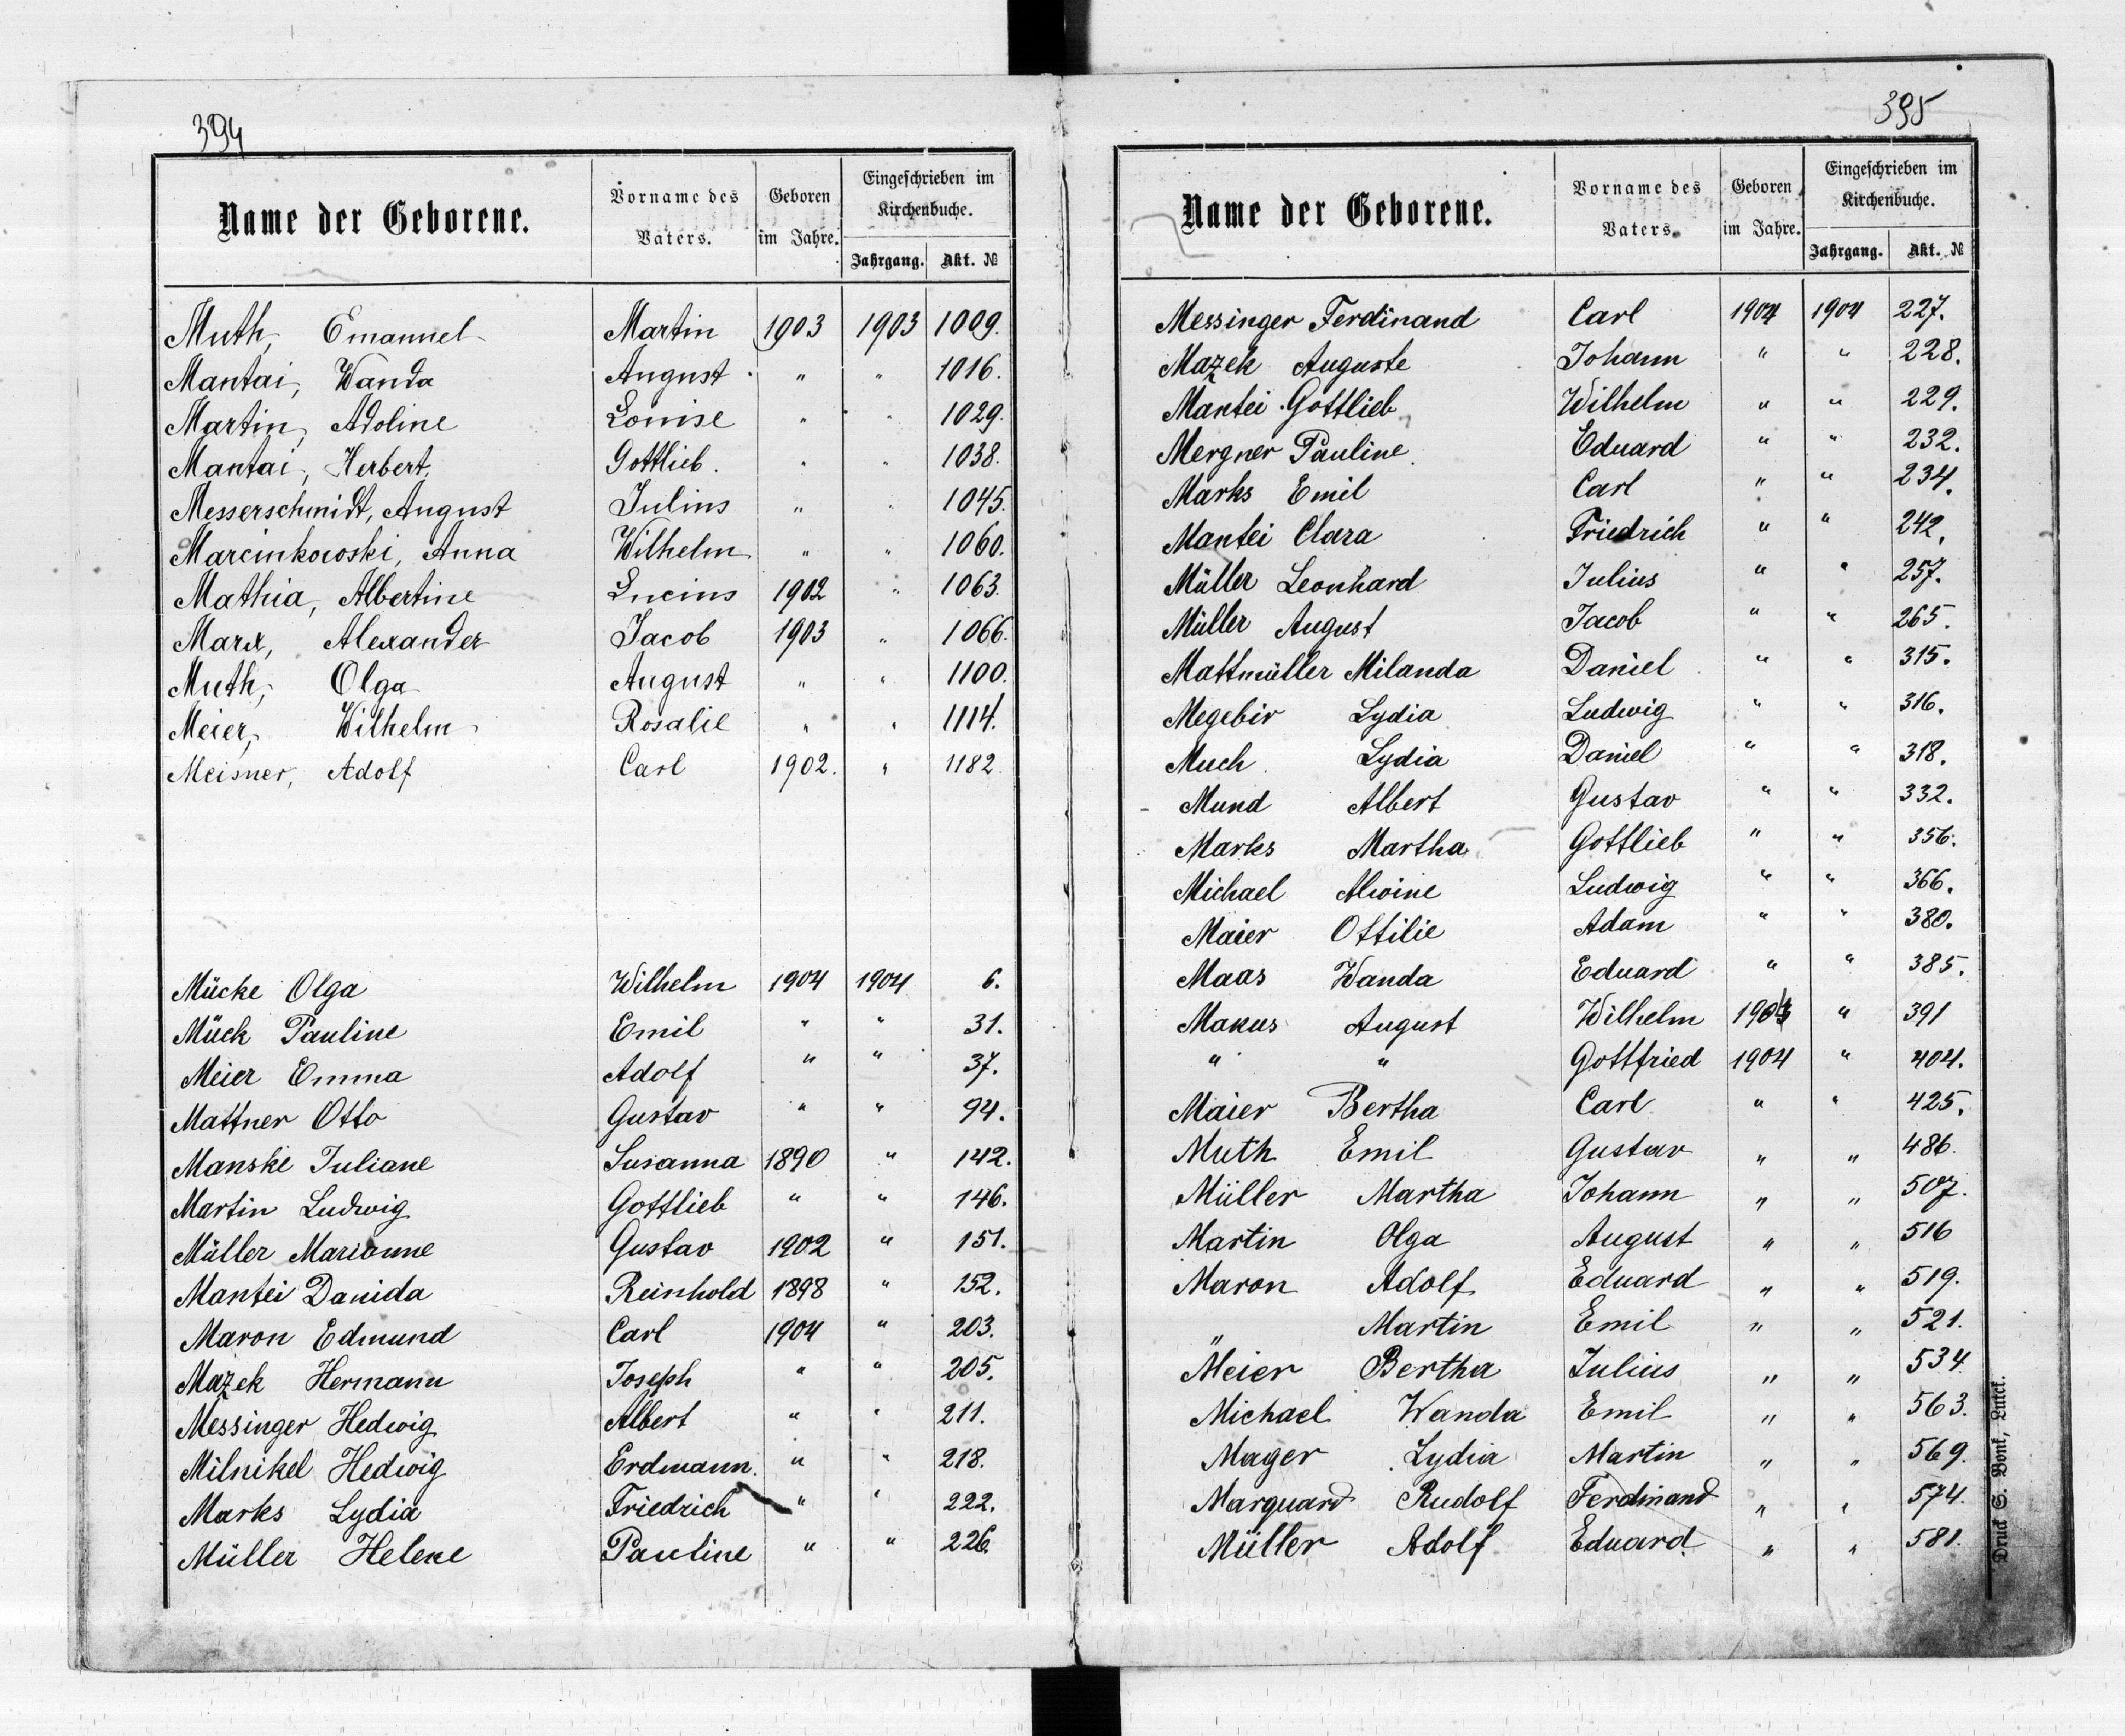 394
Name der Geborene.
Vorname des Vaters.
Geboren im Jahre.
Eingeschrieben im Kirchenbuche.
Jahrgang. Akt. №
Muth, Emanuel Martin 1903 1903 1009.
Mantai, Wanda August " " 1016.
Martin, Adoline Louise " " 1029.
Mantai, Herbert. Gottlieb. " " 1038.
Messerschmidt, August Julius " " 1045.
Marcinkowski, Anna Wilhelm " " 1060.
Mathia, Albertine Lucius 1902 " 1063.
Marx, Alexander Jacob 1903 " 1066.
Muth, Olga August " " 1100.
Meier, Wilhelm Rosalie " " 1114.
Meisner, Adolf Carl 1902. " 1182
Mücke Olga Wilhelm 1904 1904 6.
Mück Pauline Emil " " 31.
Meier Emma Adolf " " 37.
Mattner Otto Gustav " " 94.
Manske Juliane Susanna 1890 " 142.
Martin Ludwig Gottlieb " " 146.
Müller Marianne Gustav 1902 " 151.
Mantei Danida Reinhold 1898 " 152.
Maron Edmund Carl 1904 " 203.
Mazek Hermann Joseph " " 205.
Messinger Hedwig Albert " " 211.
Milnikel Hedwig Erdmann. " " 218.
Marks Lydia Friedrich " " 222.
Müller Helene Pauline " " 226.
395
Name der Geborene.
Vorname des Vaters.
Geboren im Jahre.
Eingeschrieben im Kirchenbuche.
Jahrgang. Akt. №
Messinger Ferdinand Carl 1904 1904 227.
Mazek Auguste Johann " " 228.
Mantei Gottlieb Wilhelm " " 229.
Mergner Pauline Eduard " " 232.
Marks Emil Carl " " 234.
Mantei Clara Friedrich " " 242.
Müller Leonhard Julius " " 257.
Müller August Jacob " " 265.
Mattmüller Milanda Daniel " " 315.
Megebir Lydia Ludwig " " 316.
Much Lydia Daniel " " 318.
Mund Albert Gustav " " 332.
Marks Martha Gottlieb " " 356.
Michael Alwine Ludwig " " 366.
Maier Ottilie Adam " " 380.
Maas Wanda Eduard " " 385.
Makus August Wilhelm " 391
" " Gottfried 1904 " 404.
Maier Bertha Carl " " 425.
Muth Emil Gustav " " 486.
Müller Martha Johann " " 507.
Martin Olga August " " 516
Maron Adolf Eduard " " 519.
" Martin Emil " " 521.
Meier Bertha Julius " " 534
Michael Wanda Emil " " 563.
Mager Lydia Martin " " 569.
Marguard Rudolf Ferdinand " " 574.
Müller Adolf Eduard. " " 581.
Druck S. Bonk, Lutck.